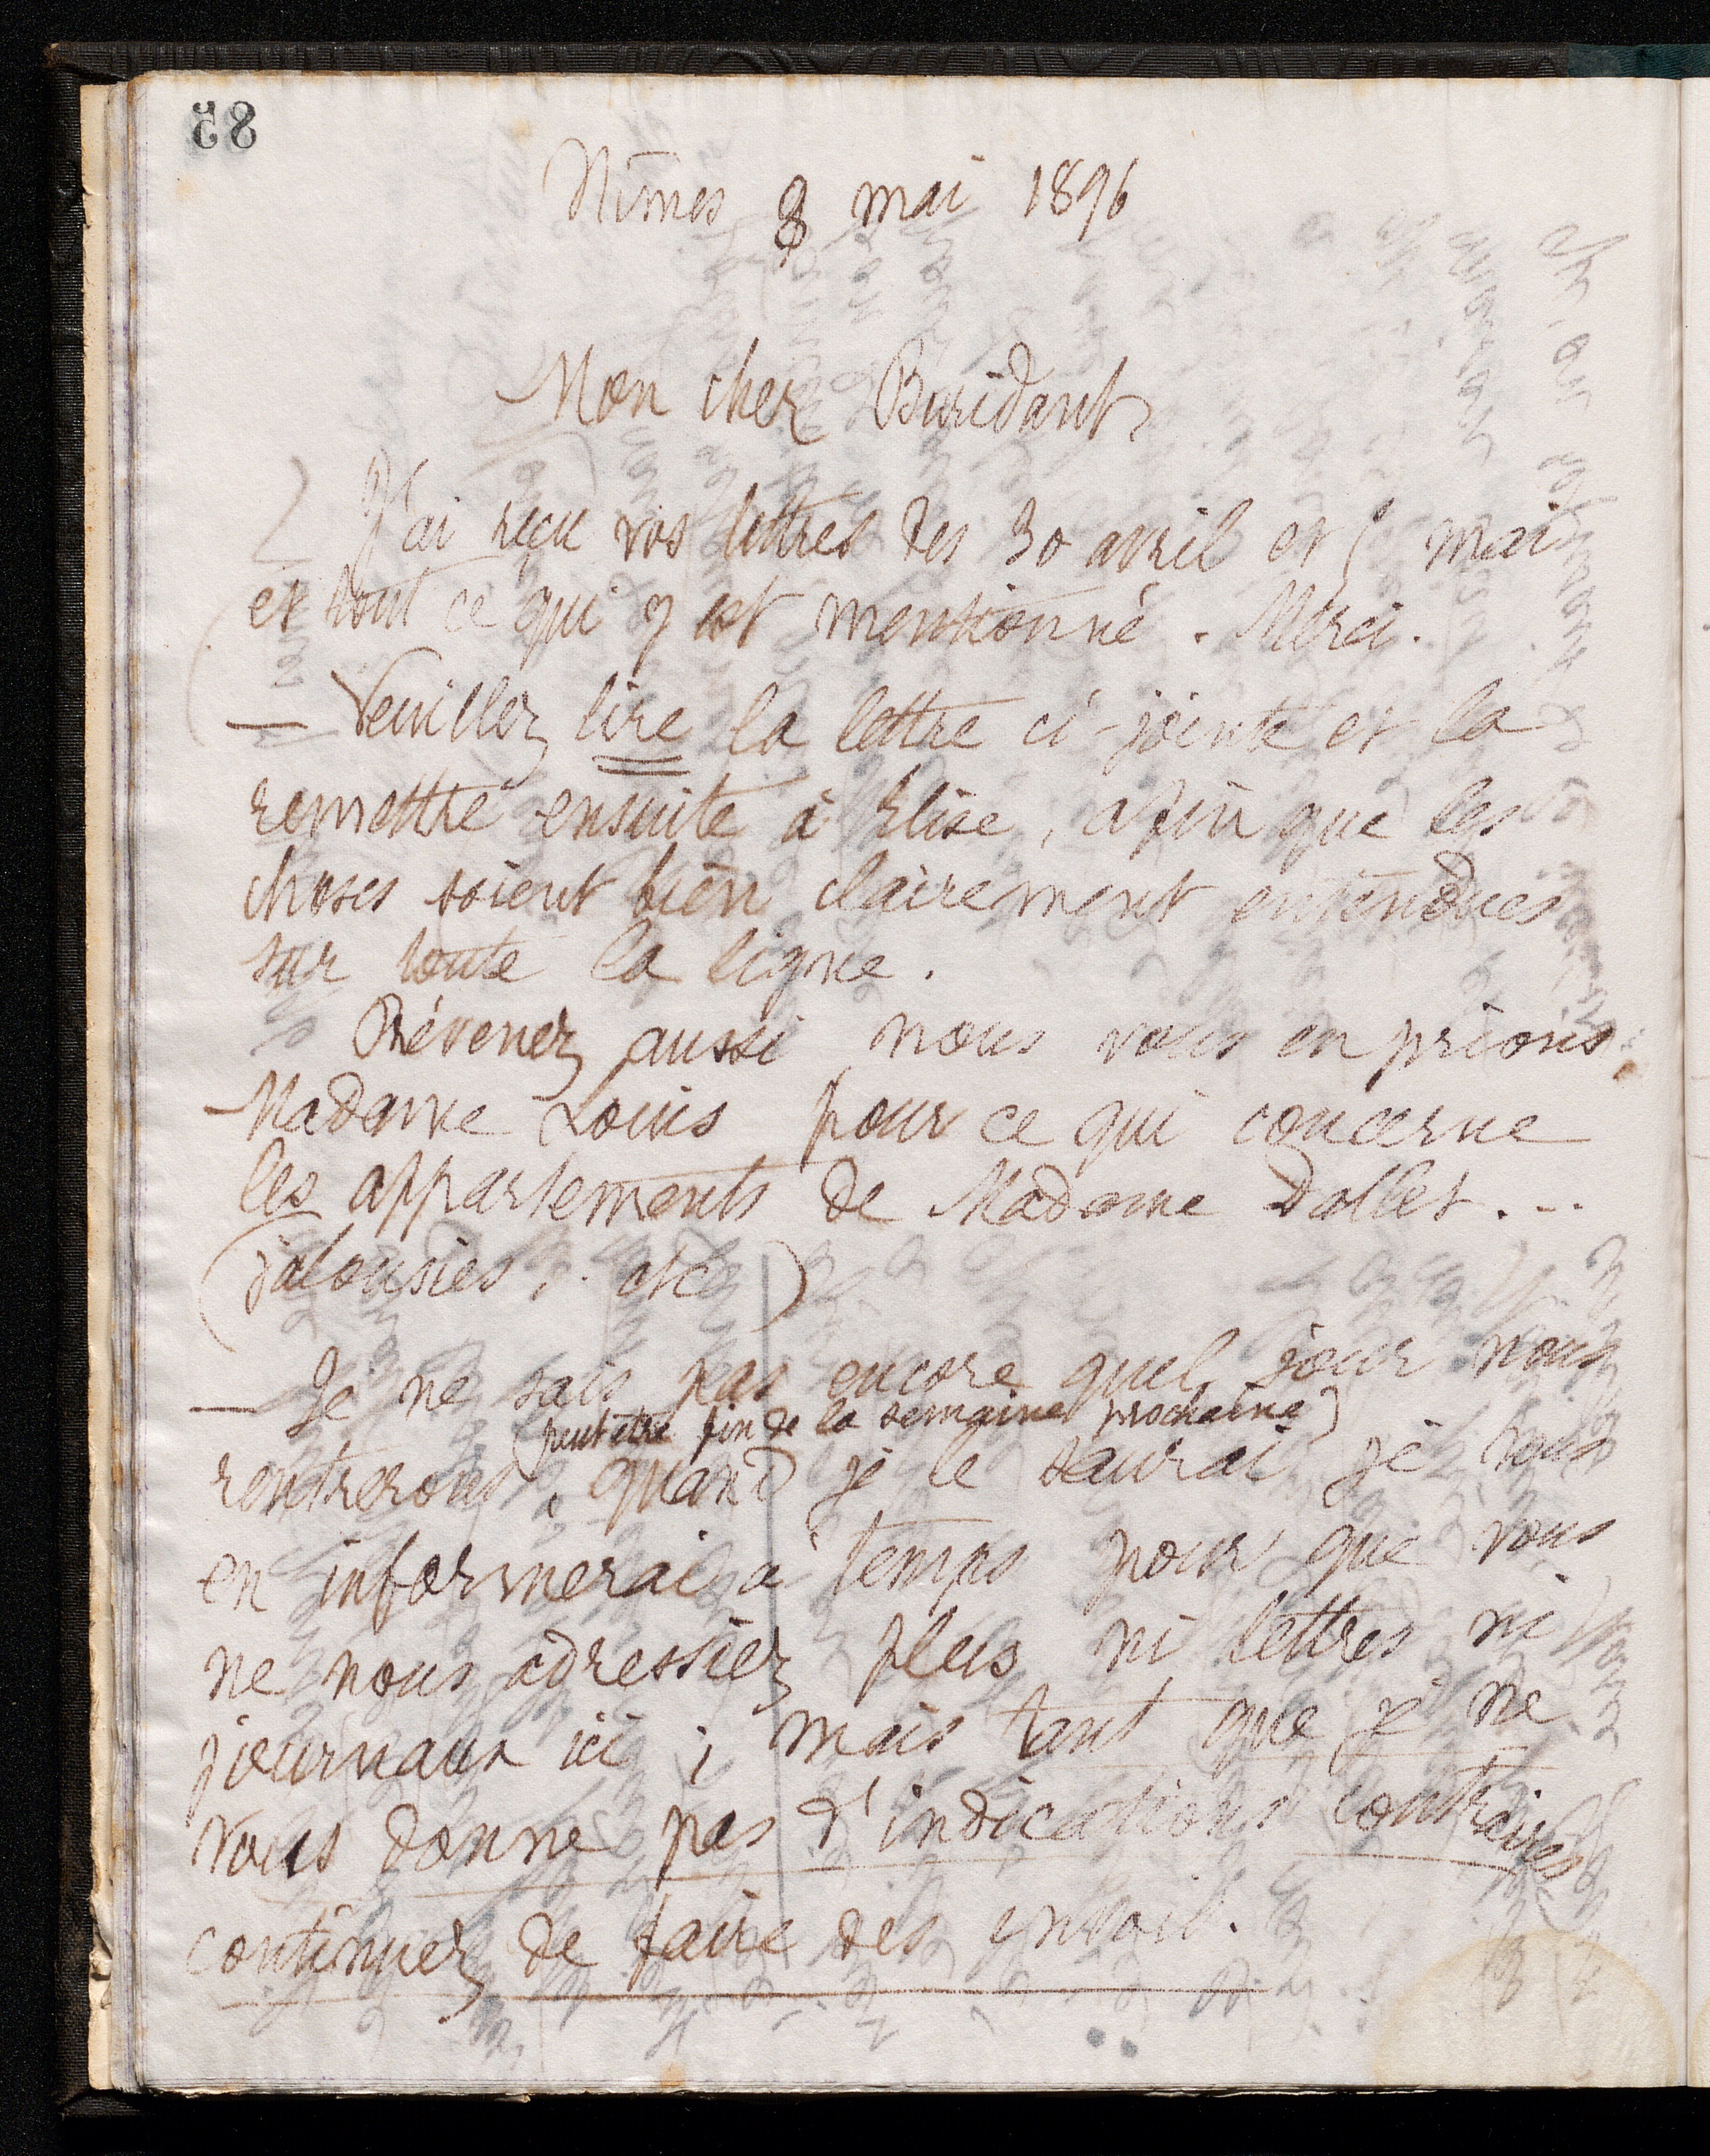 58
Nîmes 8 mai 1896
Mon cher Buridant,
J'ai reçu vos lettres des 30 avril et 5 mai
et tout ce qui y est mentionné. Merci.
— Veuillez lire la lettre ci-jointe et la
remettre ensuite à Elise, afin que les
choses soient bien clairement entendues
sur toute la ligne.
Prévenez aussi, nous vous en prions,
Madame Louis pour ce qui concerne
les appartements de Madame Dallet...
(jalousies, etc)
— Je ne sais pas encore quel jour nous
(peut être fin de la semaine prochaine)
rentrerons, quand je le saurai je vous
en informerai à temps pour que vous
ne nous adressiez plus ni lettres ni
journaux ici ; mais tant que je ne
vous donne pas d'indications contraires
continuez de faire des envois.